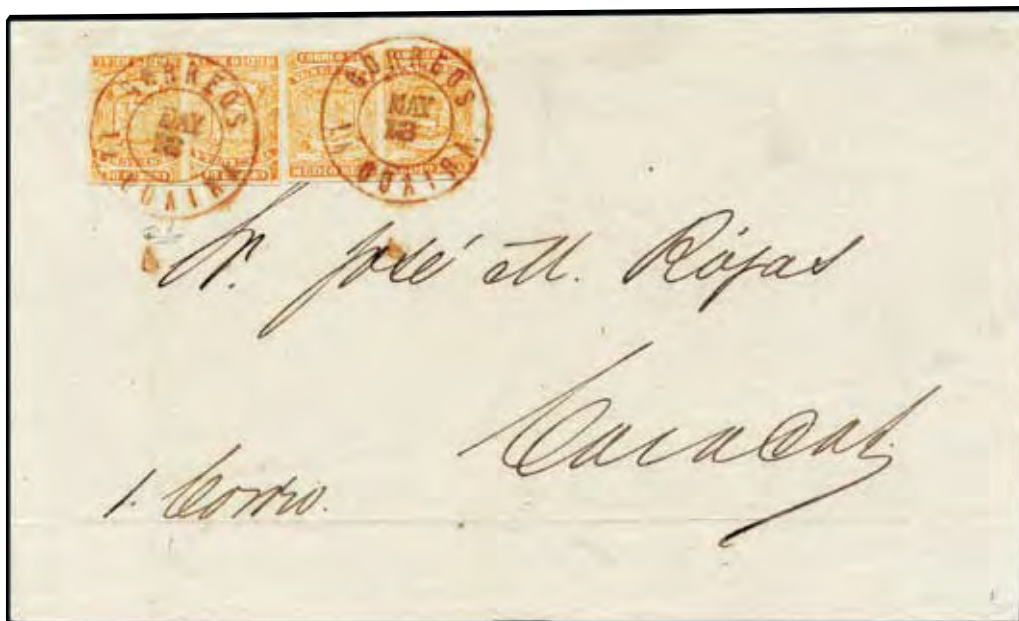 CORREOS
MAY
18
LA GUAIRA
CORREOS
MAY
18
LA GUAIRA
Sr. José M. Rojas
Caracas
p. Correo.